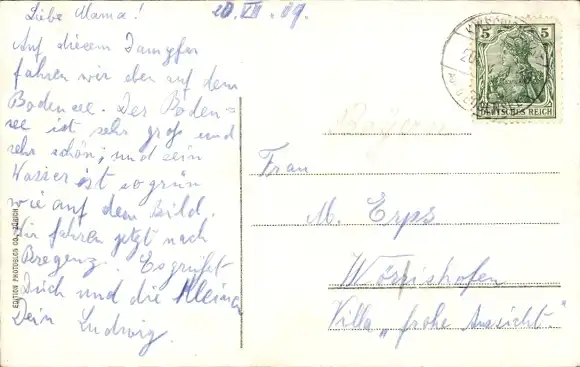 Liebe Mama! 20. VII. 09.
Auf diesem Dampfer
fahren wir eben auf dem
Bodensee. Der Boden=
see ist sehr groß und
sehr schön; und sein
Wasser ist so grün
wie auf dem Bild.
Wir fahren jetzt nach
Bregenz. Es grüßt
Dich und die Kleinen
Dein Ludwig.
EDITION PHOTOGLOB CO. ZÜRICH
5 5
DEUTSCHES REICH
Bayern
Frau
M. Erps
Wörishofen
Villa „frohe Aussicht."